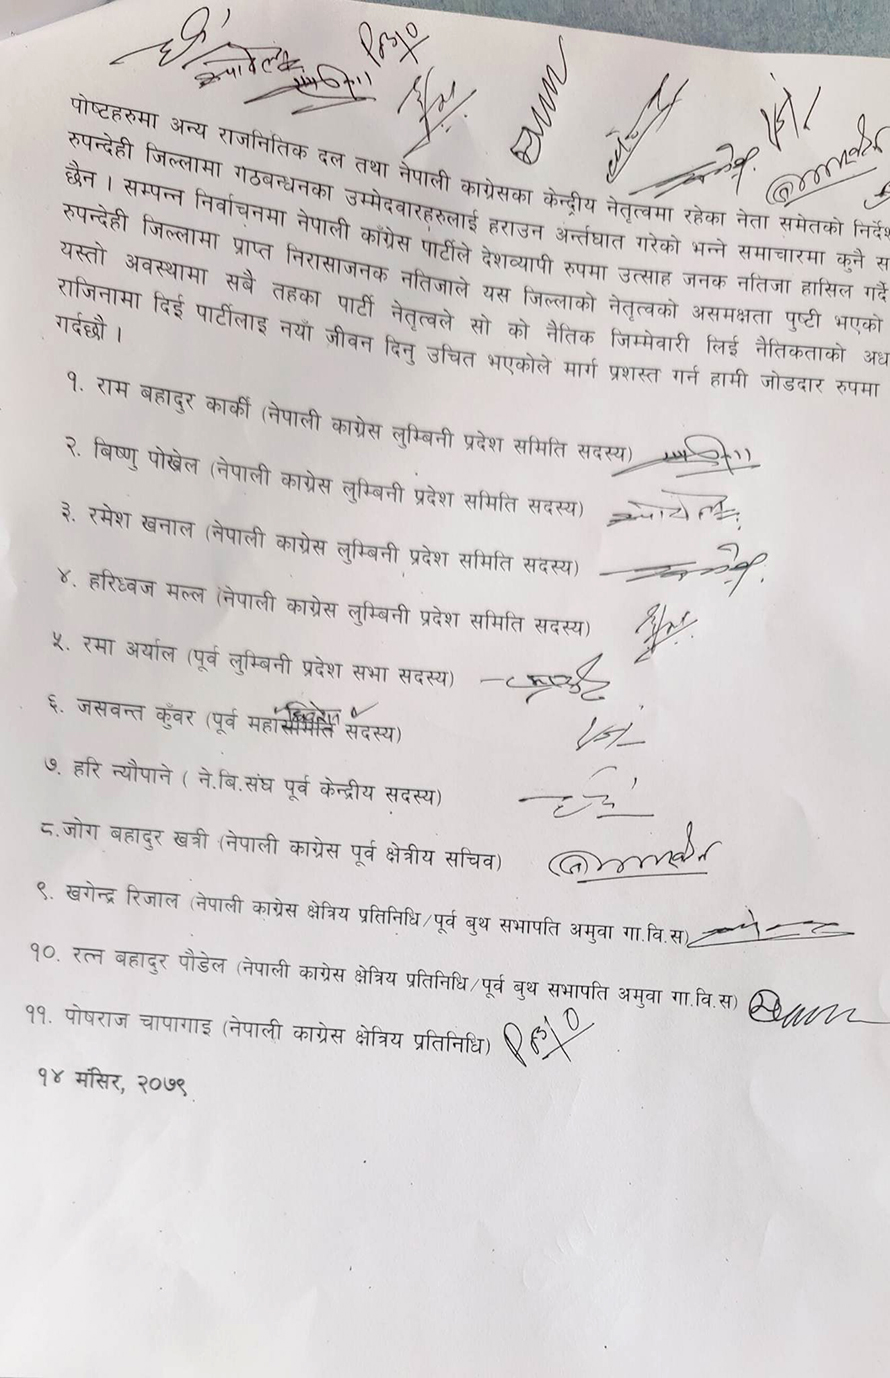 पोष्टहरुमा अन्य राजनितिक दल तथा नेपाली काग्रेसका केन्द्रीय नेतृत्वमा रहेका नेता समेतको निर्देश
रुपन्देही जिल्लामा गठबन्धनका उम्मेदवारहरुलाई हराउन अर्न्तघात गरेको भन्ने समाचारमा कुनै स
छैन । सम्पन्न निर्वाचनमा नेपाली काँग्रेस पार्टीले देशव्यापी रुपमा उत्साह जनक नतिजा हासिल गर्दै
रुपन्देही जिल्लामा प्राप्त निरासाजनक नतिजाले यस जिल्लाको नेतृत्वको असमक्षता पुष्टी भएको
यस्तो अवस्थामा सबै तहका पार्टी नेतृत्वले सो को नैतिक जिम्मेवारी लिई नैतिकताको अध
राजिनामा दिई पार्टीलाइ नयाँ जीवन दिनु उचित भएकोले मार्ग प्रशस्त गर्न हामी जोडदार रुपमा
गर्दछौ ।
१. राम बहादुर कार्की (नेपाली काग्रेस लुम्बिनी प्रदेश समिति सदस्य)
२. बिष्णु पोख्रेल (नेपाली काग्रेस लुम्बिनी प्रदेश समिति सदस्य)
३. रमेश खनाल (नेपाली काग्रेस लुम्बिनी प्रदेश समिति सदस्य)
४. हरिध्वज मल्ल (नेपाली काग्रेस लुम्बिनी प्रदेश समिति सदस्य)
५. रमा अर्याल (पूर्व लुम्बिनी प्रदेश सभा सदस्य)
६. जसवन्त कुँवर (पूर्व महासमिति सदस्य)
७. हरि न्यौपाने ( ने.बि.संघ पूर्व केन्द्रीय सदस्य)
८.जोग बहादुर खत्री (नेपाली काग्रेस पूर्व क्षेत्रीय सचिव)
९. खगेन्द्र रिजाल (नेपाली काग्रेस क्षेत्रिय प्रतिनिधि/पूर्व बुथ सभापति अमुवा गा.वि.स)
१०. रत्न बहादुर पौडेल (नेपाली काग्रेस क्षेत्रिय प्रतिनिधि/पूर्व बुथ सभापति अमुवा गा.वि.स)
११. पोषराज चापागाइ (नेपाली काग्रेस क्षेत्रिय प्रतिनिधि)
१४ मंसिर, २०७९